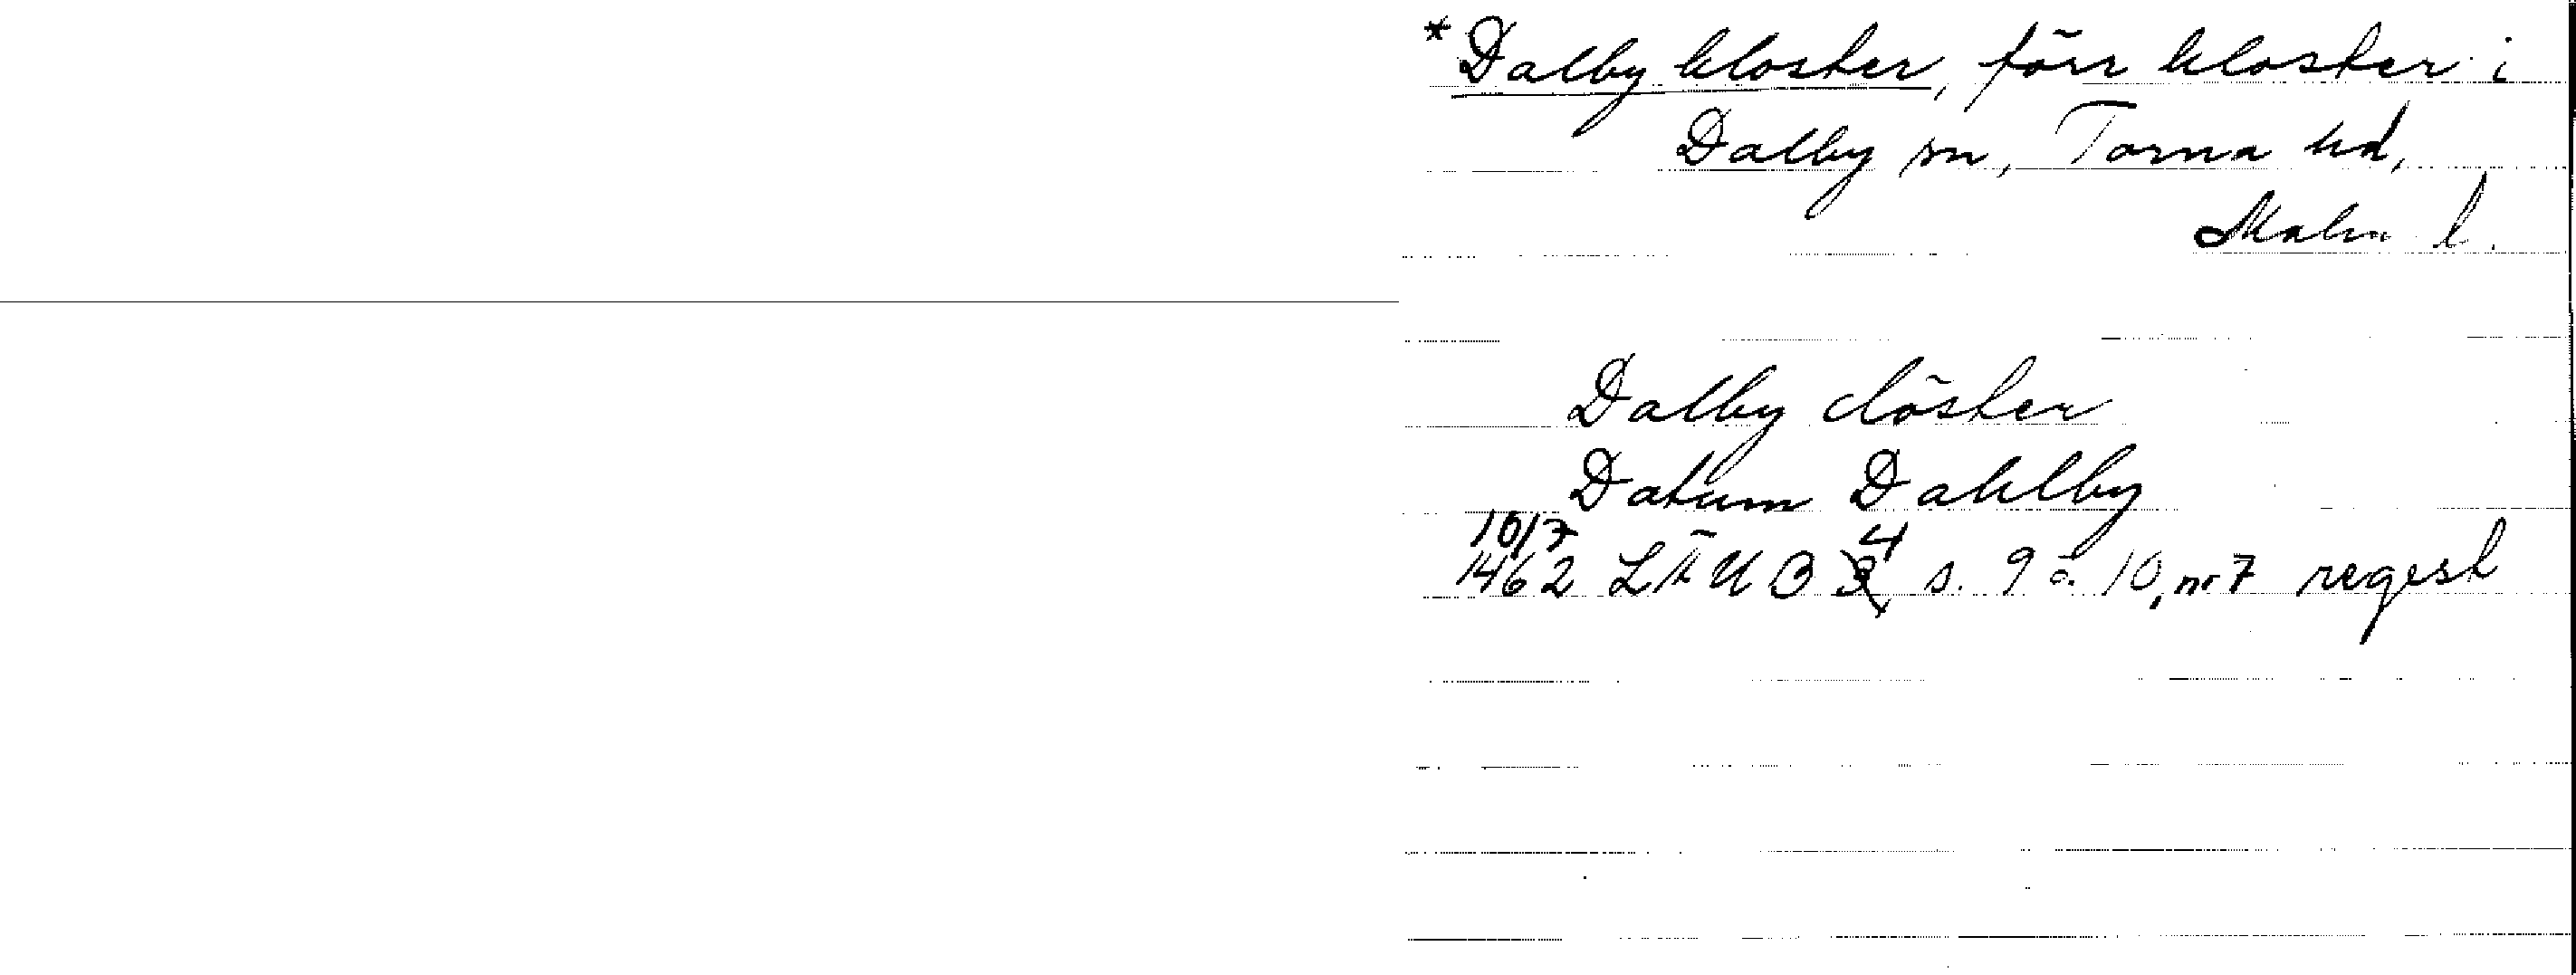 *Dalby kloster, förr kloster i
Dalby sn, Torna hd,
Malm l.
Dalby clöster
Datum Dahlby
10/7
1462 LÄUB 4 s. 9 å 10, nr 7 regest